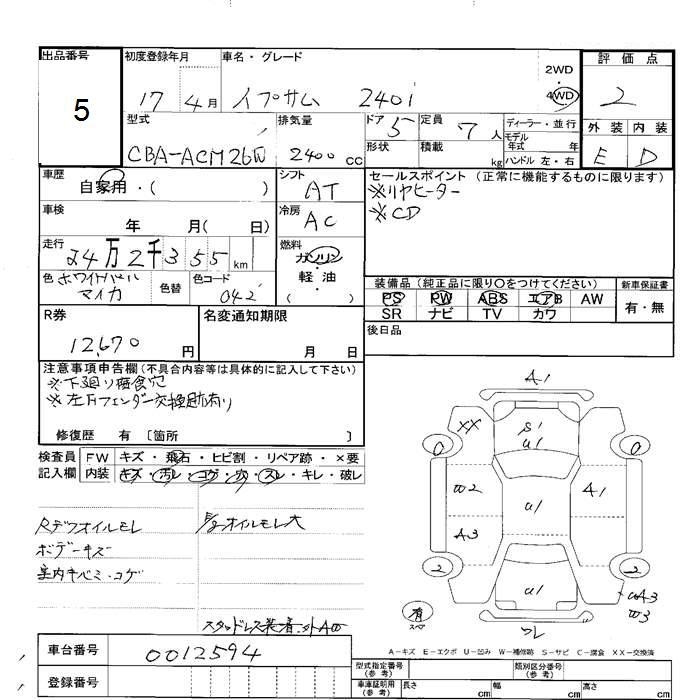 出品番号
5
初度登録年月
17年 4月
車名・グレード
イプサム 240i
2WD
・
4WD
評価点
2
外装 内装
E D
型式
CBA-ACM26W
排気量
2400cc
ドア 5
形状
定員 7人
積載 kg
ディーラー・並行
モデル
年式 年
ハンドル 左・右
車歴
自家用・( )
シフト
AT
セールスポイント (正常に機能するものに限ります)
※リヤヒーター
※CD
車検
年 月( 日)
冷房
AC
走行
24万2千355km
燃料
ガソリン
・
軽油
( )
色 ホワイトパール
マイカ
色替
色コード
042
装備品(純正品に限り○をつけてください)
PS PW ABS エアB AW
SR ナビ TV カワ
新車保証書
有・無
R券
12,670円
名変通知期限
月 日
後日品
注意事項申告欄(不具合内容等は具体的に記入して下さい)
※下廻り腐食穴
※左Fフェンダー交換跡有り
修復歴 有 〔箇所 〕
検査員
記入欄
FW キズ・飛石・ヒビ割・リペア跡・×要
内装 キズ・汚レ・コゲ・穴・スレ・キレ・破レ
Rデフオイルモレ
ボデーキズ
室内キバミ・コゲ
E/gオイルモレ大
スタッドレス装着
A1
XX
S1
U1
W2
U1
A1
A3
U1
0
0
2
2
UA3
W3
有
スペア
ワレ
A－キズ E－エクボ U－凹み W－補修跡 S－サビ C－腐食 XX－交換済
車台番号
0012594
登録番号
型式指定番号
(参考)
類別区分番号
(参考)
車庫証明用
(参考)
長さ cm
幅 cm
高さ cm